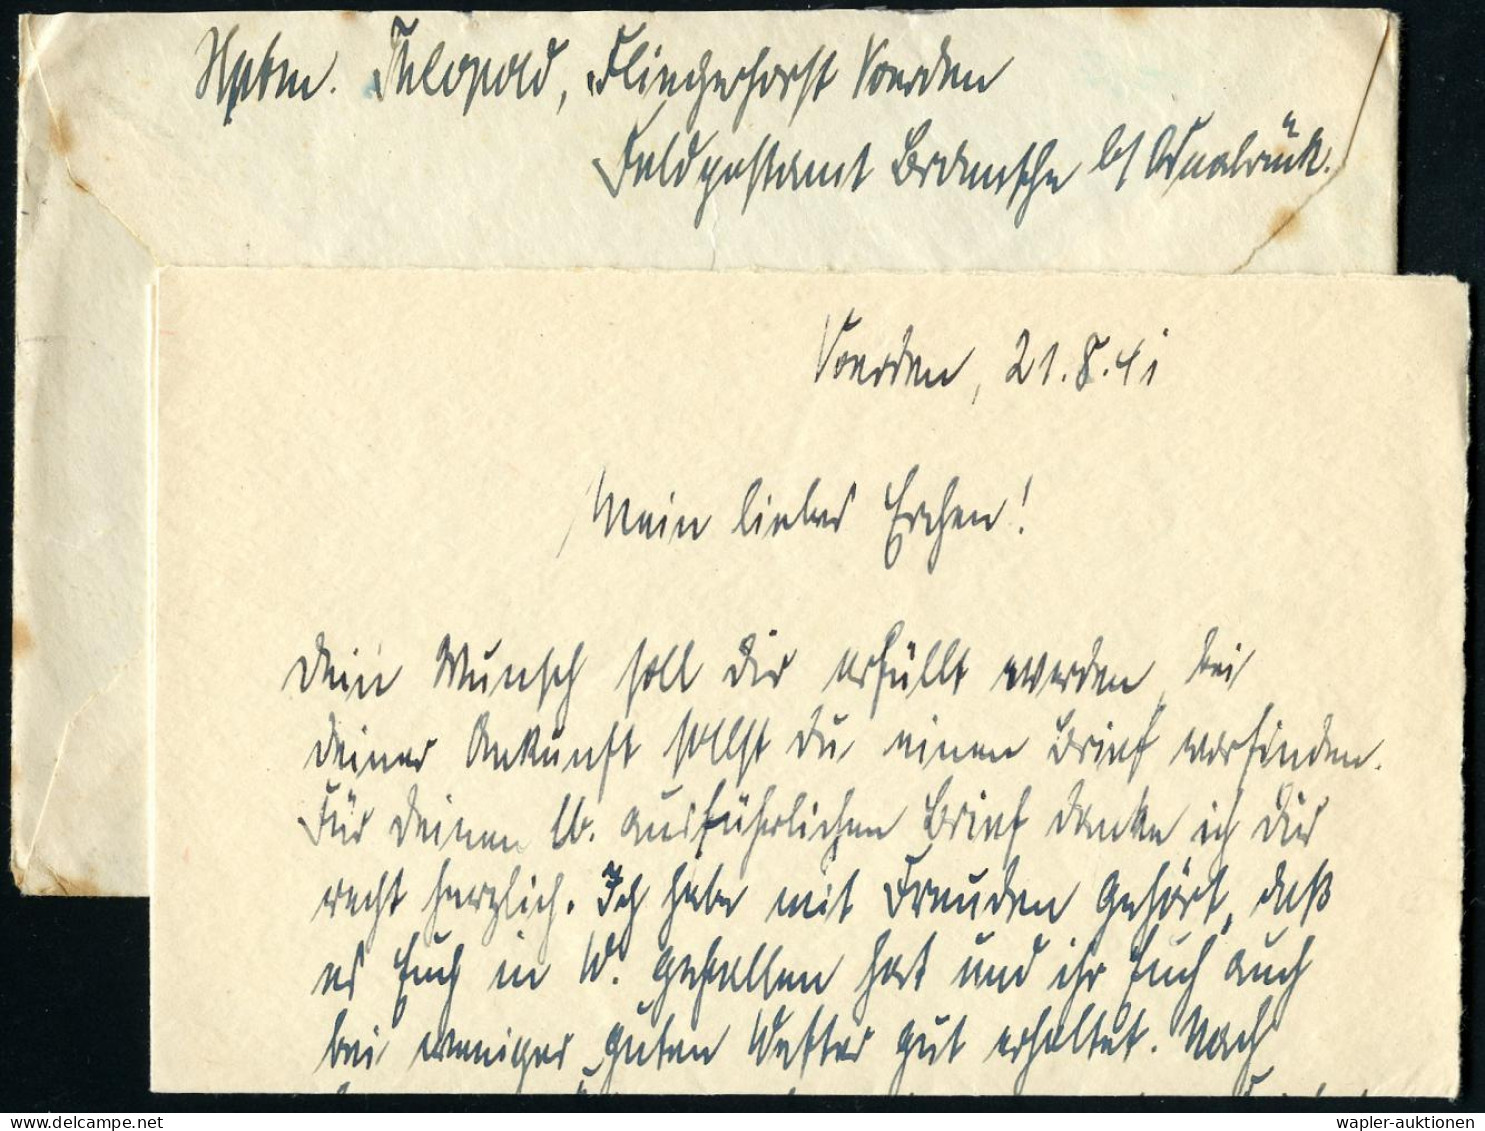 Hptm. Thlopold, Fliegerhorst Voerden
Feldpostamt Bramsche b/ Osnabrück.
Voerden, 21.8.41
Mein liebes Evchen!
Dein Wunsch soll Dir erfüllt werden, bei
deiner Ankunft sollst Du einen Brief vorfinden.
Für Deinen lb. ausführlichen Brief danke ich Dir
recht herzlich. Ich habe mit Freuden gehört, daß
es Euch in W. gefallen hat und ihr Euch auch
bei weniger guten Wetter gut erholtet. Nach
wapler-auktionen